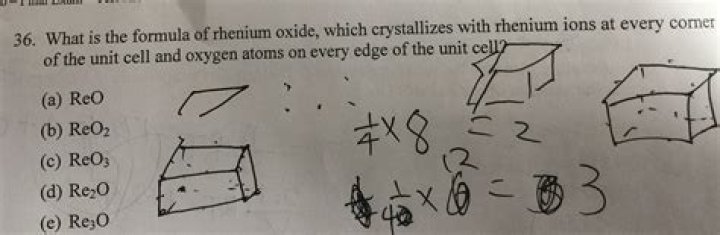 36. What is the formula of rhenium oxide, which crystallizes with rhenium ions at every corner
of the unit cell and oxygen atoms on every edge of the unit cell?
(a) ReO
(b) ReO₂
(c) ReO₃
(d) Re₂O
(e) Re₃O
1/4 × 8 = 2
12
1/4 × = 3